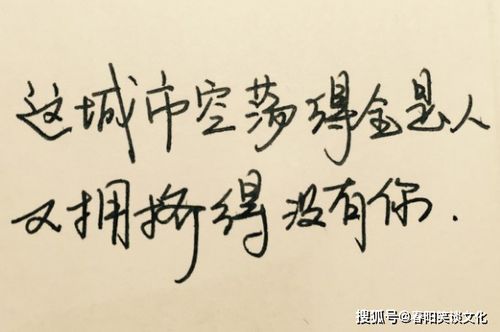 这城市空荡得全是人
又拥挤得没有你.
搜狐号@春阳笑谈文化